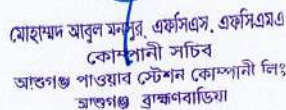 মোহাম্মদ আবুল মনসুর, এফসিএস, এফসিএমএ
কোম্পানী সচিব
আশুগঞ্জ পাওয়ার স্টেশন কোম্পানী লিঃ
আশুগঞ্জ ব্রাহ্মণবাড়িয়া